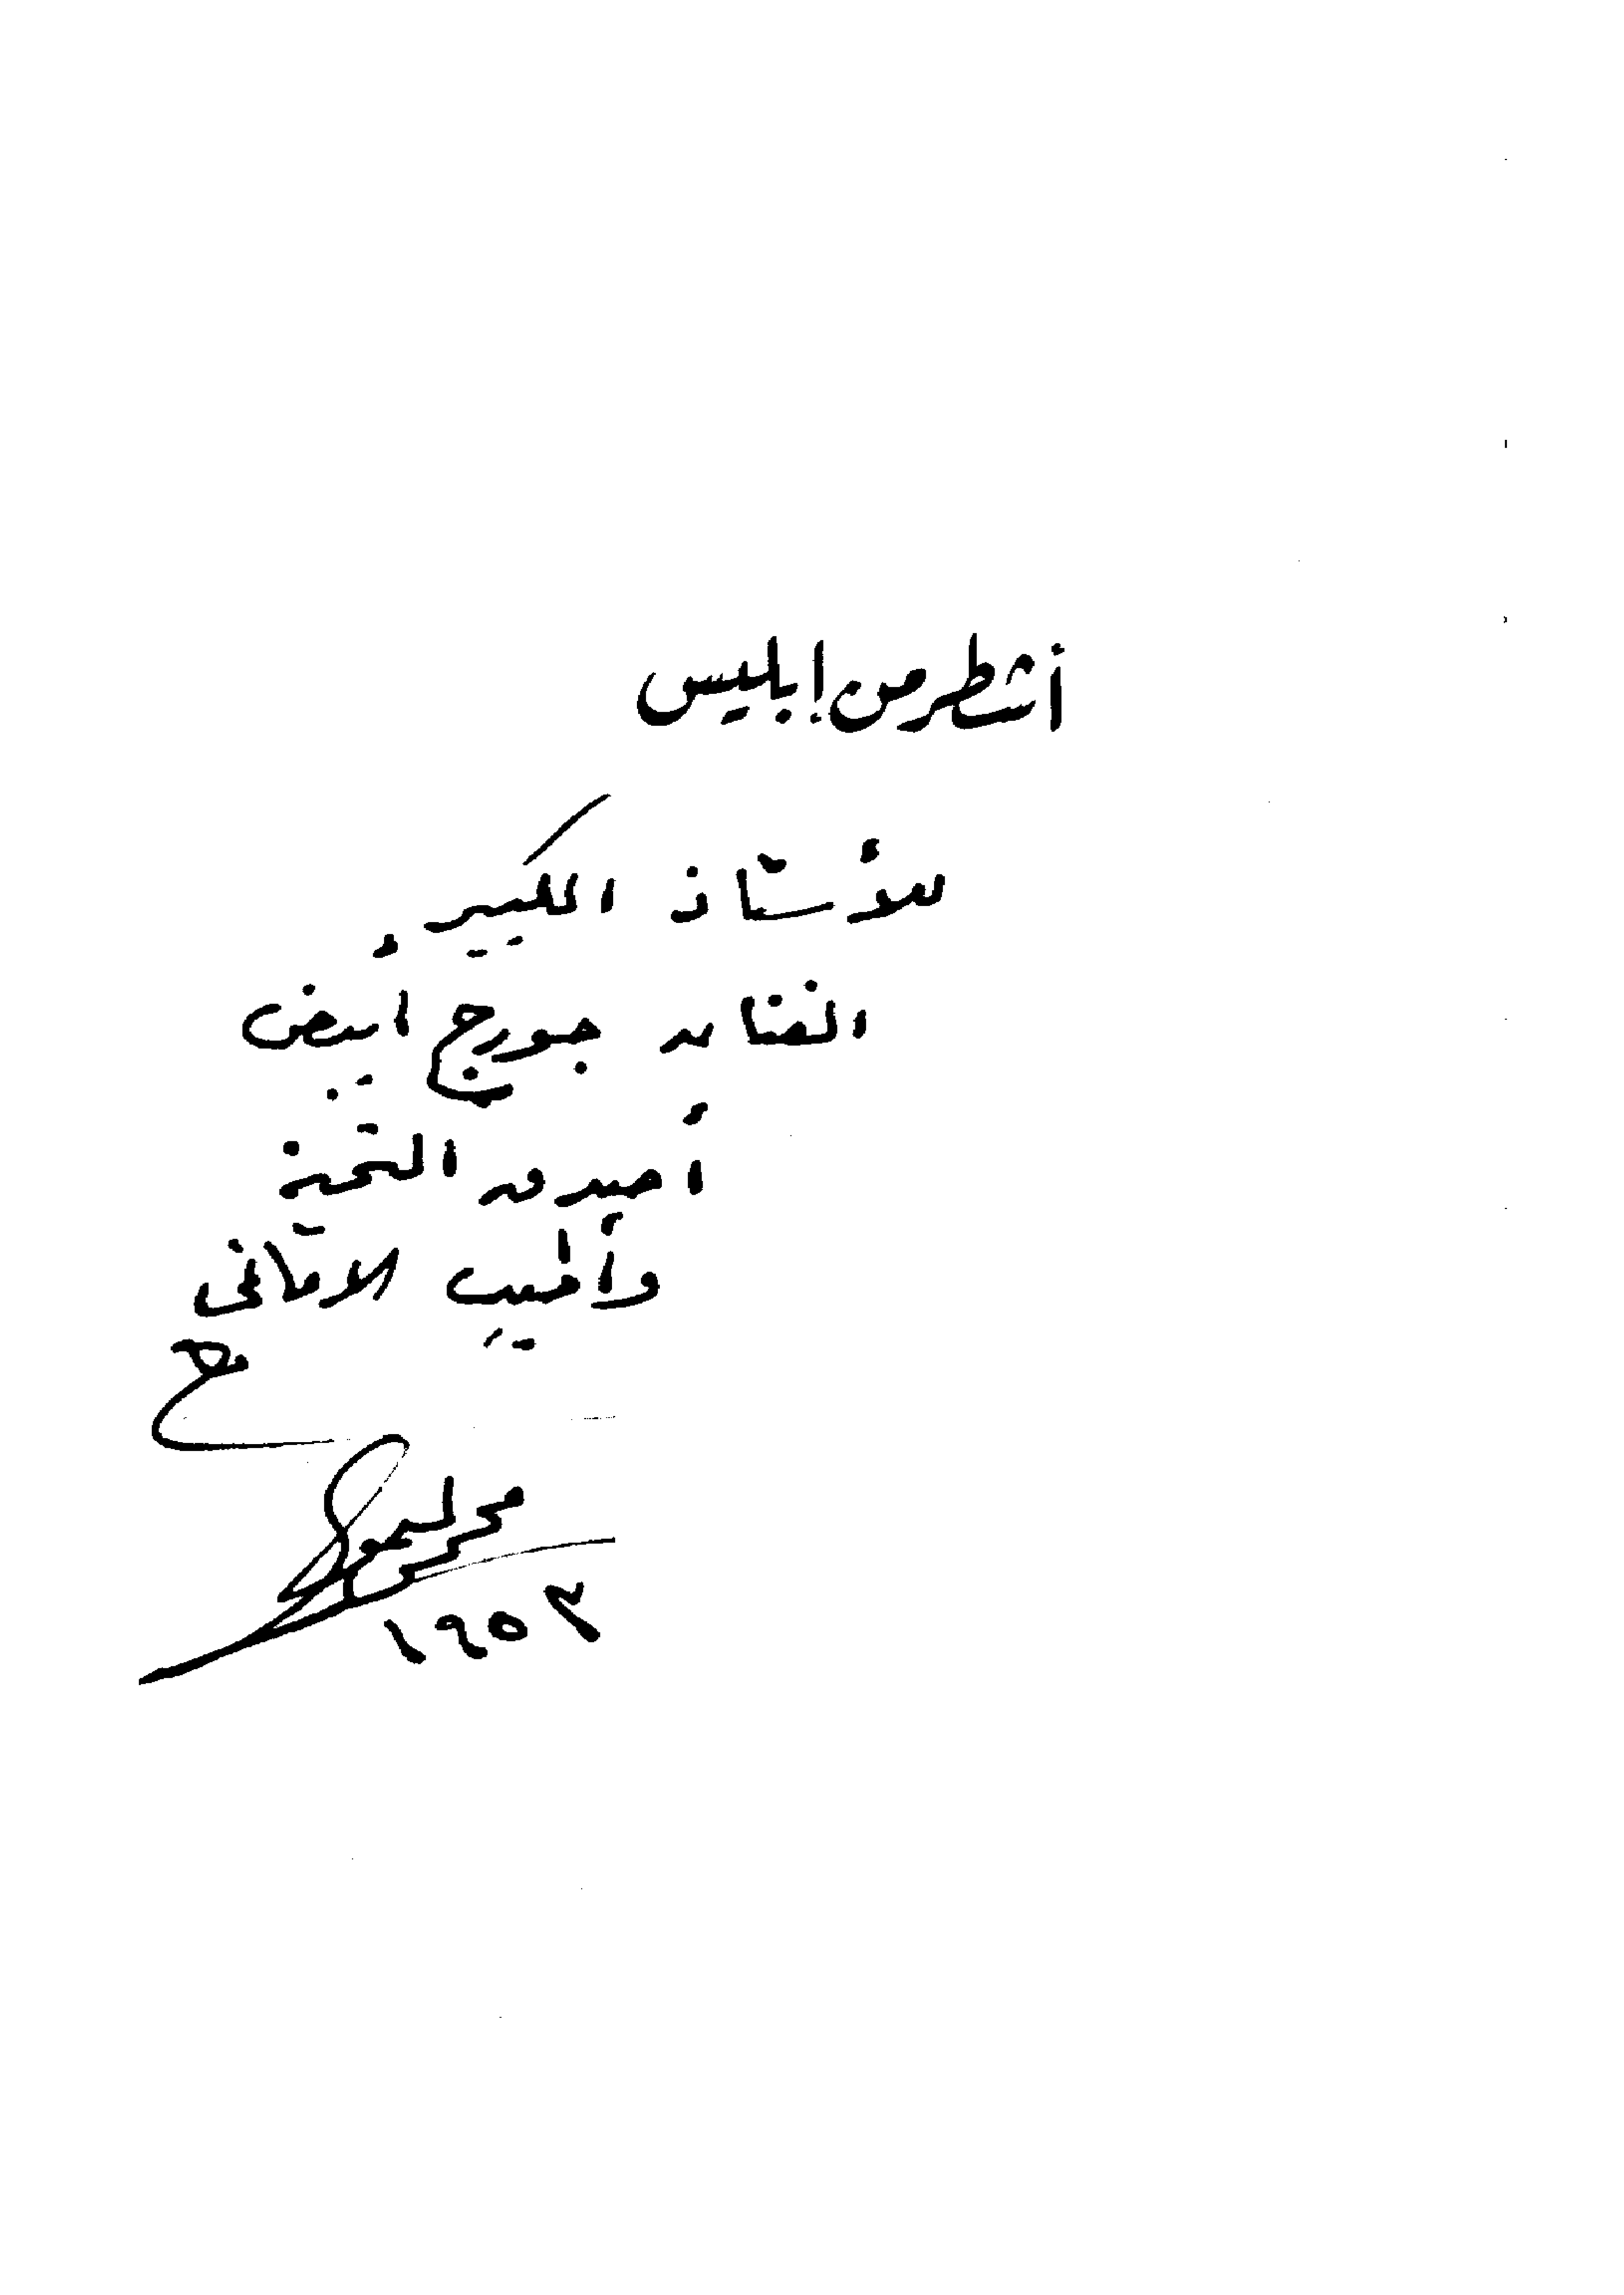 أشطر من إبليس
للأستاذ الكبير
الفنان جورج أبيض
أصدق التحية
وأطيب الأماني
محمود تيمور
١٩٥٣